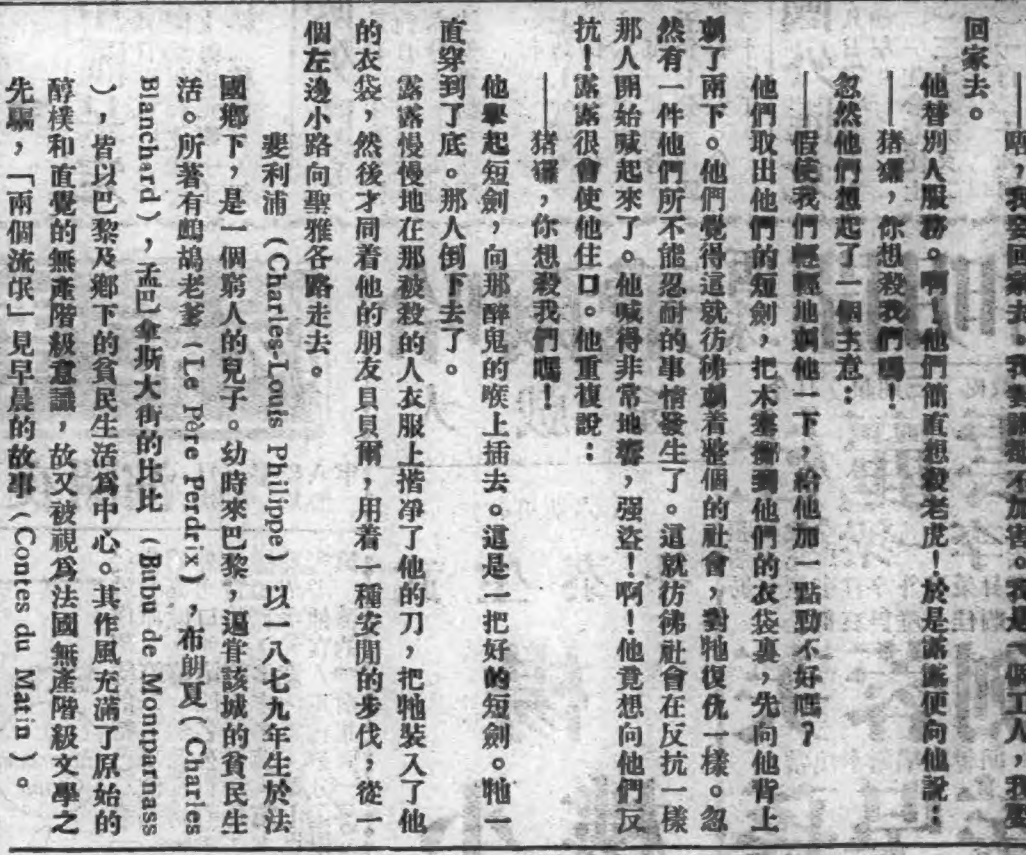 ——唔，我要回家去。我對誰都不加害。我是一個工人，我要
回家去。
他替別人服務。啊！他們簡直想殺老虎！於是露露便向他說：
——猪玀，你想殺我們嗎！
忽然他們想起了一個主意：
——假使我們輕輕地刺他一下，給他加一點勁不好嗎？
他們取出他們的短劍，把木塞擲到他們的衣袋裏，先向他背上
刺了兩下。他們覺得這就彷彿刺着整個的社會，對牠復仇一樣。忽
然有一件他們所不能忍耐的事情發生了。這就彷彿社會在反抗一樣
那人開始喊起來了。他喊得非常地響，强盜！啊！他竟想向他們反
抗！露露很會使他住口。他重復說：
——猪玀，你想殺我們嗎！
他舉起短劍，向那醉鬼的喉上插去。這是一把好的短劍。牠一
直穿到了底。那人倒下去了。
露露慢慢地在那被殺的人衣服上揩净了他的刀，把牠裝入了他
的衣袋，然後才同着他的朋友貝貝爾，用着一種安閒的步伐，從一
個左邊小路向聖雅各路走去。
斐利浦（Charles-Louis Philippe）以一八七九年生於法
國鄉下，是一個窮人的兒子。幼時來巴黎，遍嘗該城的貧民生
活。所著有鷓鴣老爹（Le Père Perdrix），布朗夏（Charles
Blanchard），孟巴拿斯大街的比比（Bubu de Montparnass
），皆以巴黎及鄉下的貧民生活爲中心。其作風充滿了原始的
醇樸和直覺的無產階級意識，故又被視爲法國無產階級文學之
先驅，「兩個流氓」見早晨的故事（Contes du Matin）。